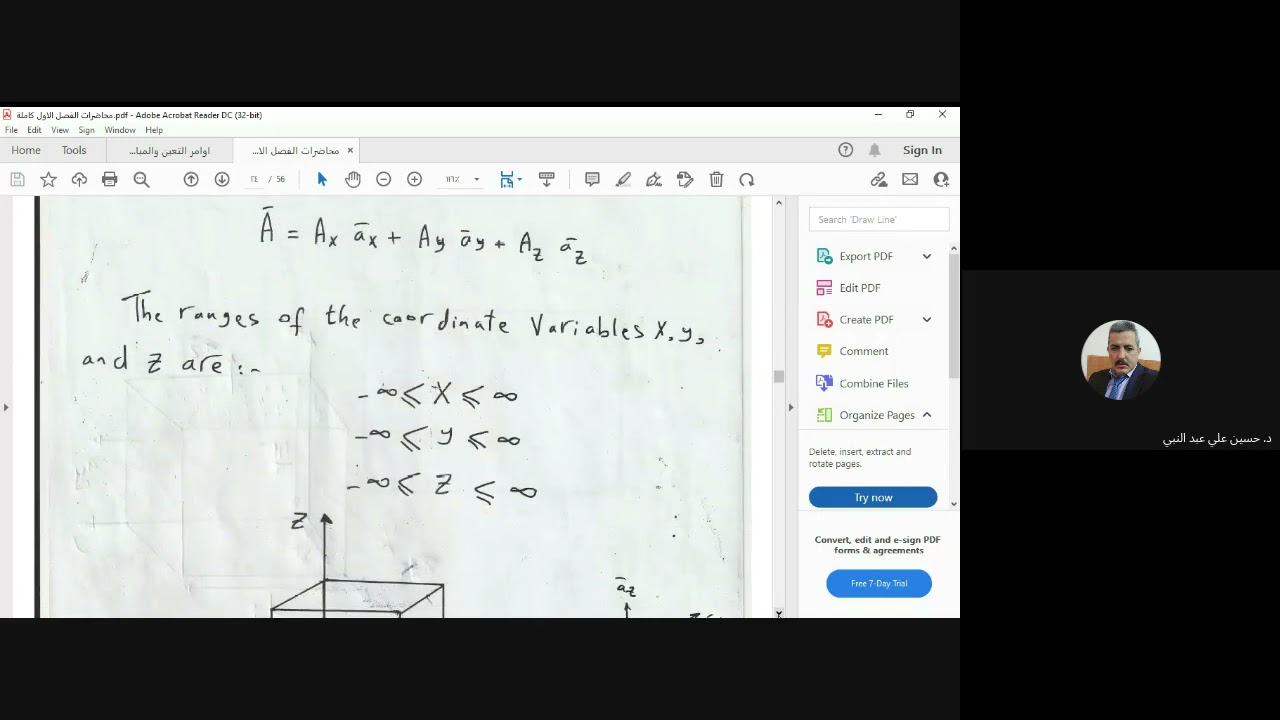 محاضرات الفصل الاول كاملة.pdf - Adobe Acrobat Reader DC (32-bit)
File Edit View Sign Window Help
Home Tools اوامر التعين والمبا... محاضرات الفصل الا... ×
/ 56
Sign In
Ā = Ax āx + Ay āy + Az āz
The ranges of the coordinate Variables X, y,
and Z are :-
-∞ ≤ X ≤ ∞
-∞ ≤ y ≤ ∞
-∞ ≤ Z ≤ ∞
Z
āz
Search 'Draw Line'
Export PDF
Edit PDF
Create PDF
Comment
Combine Files
Organize Pages
Delete, insert, extract and
rotate pages.
Try now
Convert, edit and e-sign PDF
forms & agreements
Free 7-Day Trial
د. حسين علي عبد النبي